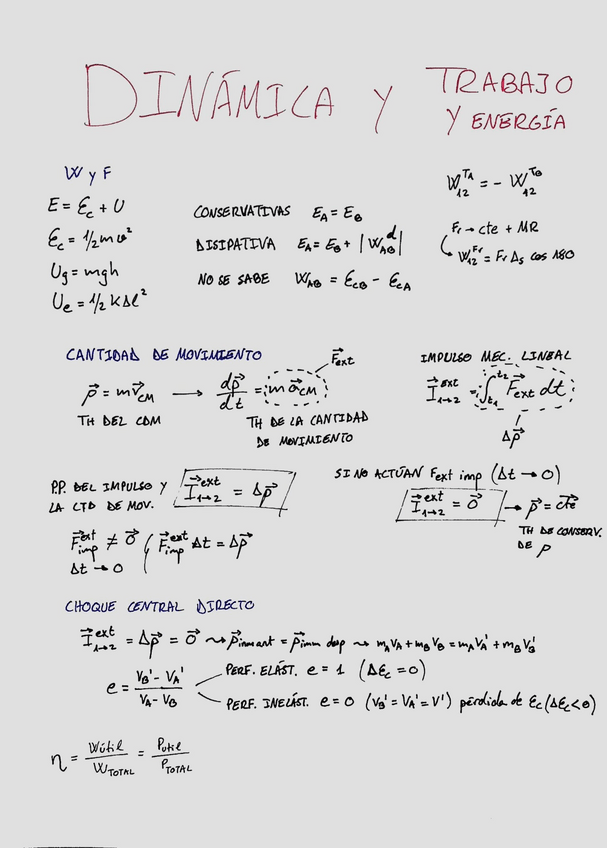 DINÁMICA Y TRABAJO
Y ENERGÍA
W y F
E = Ec + U
Ec = 1/2 m v²
Ug = mgh
Ue = 1/2 K Δl²
CONSERVATIVAS E_A = E_B
DISIPATIVA E_A = E_B + |W_AB^d|
NO SE SABE W_AB = Ec_B - Ec_A
W_12^TA = - W_12^TB
Fr → cte + MR
W_12^Fr = Fr Δs cos 180
CANTIDAD DE MOVIMIENTO
p⃗ = m v⃗_CM → dp⃗/dt = m a⃗_CM
F⃗ext
TH DEL CDM
TH DE LA CANTIDAD
DE MOVIMIENTO
IMPULSO MEC. LINEAL
I⃗_1→2^ext = ∫_t1^t2 F⃗ext dt
Δp⃗
P.P. DEL IMPULSO Y
LA CTD DE MOV.
I⃗_1→2^ext = Δp⃗
F⃗_imp^ext ≠ 0⃗
Δt → 0
F⃗_imp^ext Δt = Δp⃗
SI NO ACTÚAN Fext imp (Δt → 0)
I⃗_1→2^ext = 0⃗ → p⃗ = cte⃗
TH DE CONSERV.
DE p
CHOQUE CENTRAL DIRECTO
I⃗_1→2^ext = Δp⃗ = 0⃗ ⇝ p⃗inm ant = p⃗inm desp ⇝ m_A v_A + m_B v_B = m_A v_A' + m_B v_B'
e = (v_B' - v_A') / (v_A - v_B)
PERF. ELÁST. e = 1 (ΔEc = 0)
PERF. INELÁST. e = 0 (v_B' = v_A' = v') pérdida de Ec (ΔEc < 0)
η = Wútil / W_TOTAL = Pútil / P_TOTAL